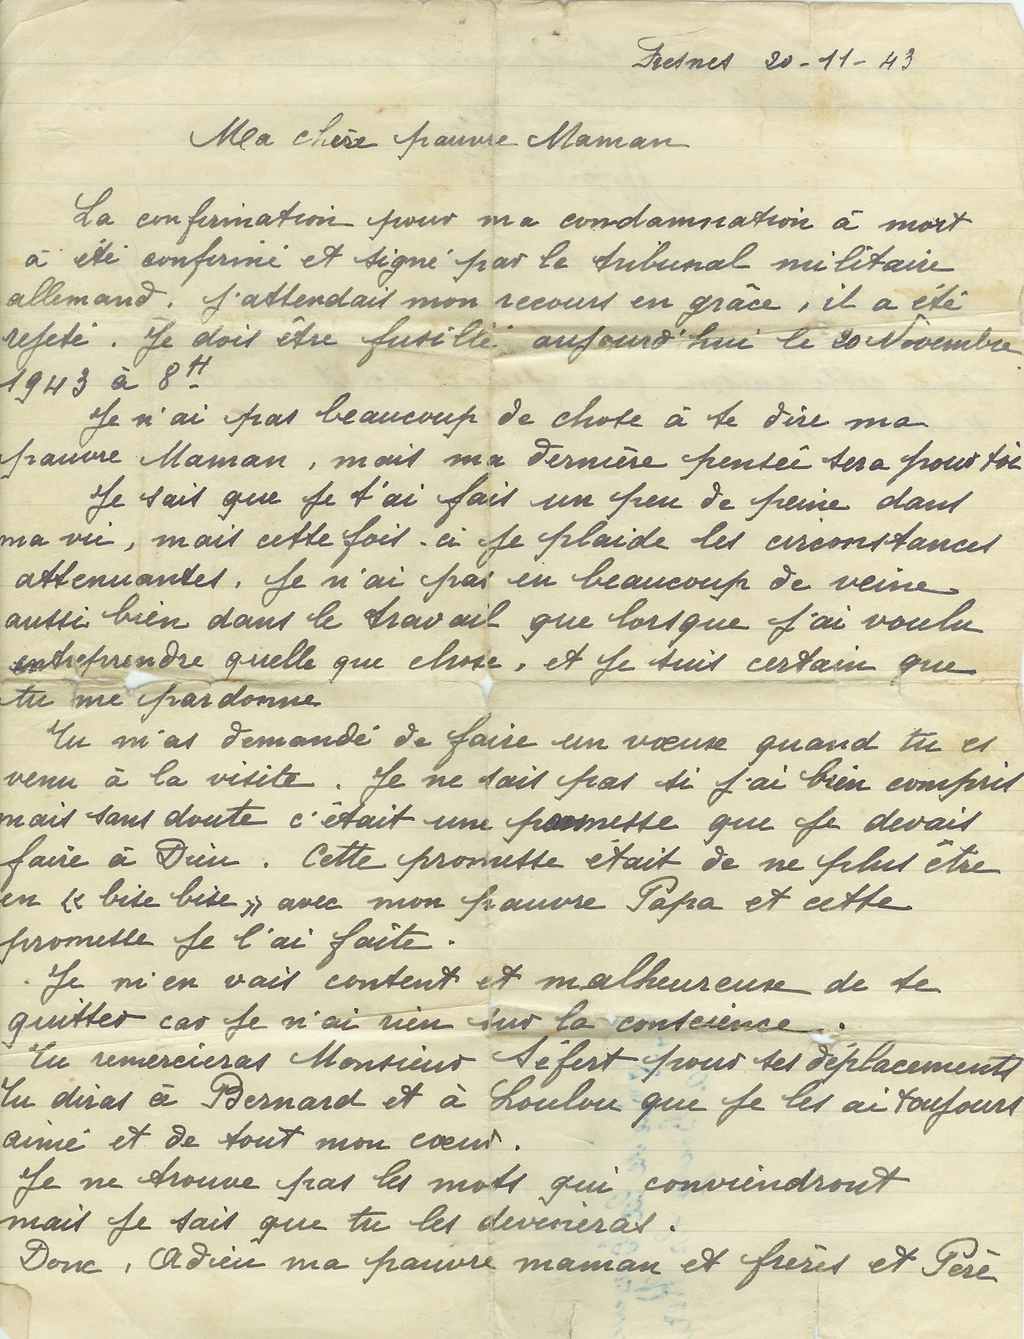 Fresnes 20-11-43
Ma chère pauvre Maman
La confirmation pour ma condamnation à mort
à été confirmé et signé par le tribunal militaire
allemand. J'attendais mon recours en grâce, il a été
rejeté. Je dois être fusillé aujourd'hui le 20 Novembre
1943 à 8H
Je n'ai pas beaucoup de chose à te dire ma
pauvre Maman, mais ma dernière pensée sera pour toi
Je sais que je t'ai fais un peu de peine dans
ma vie, mais cette fois-ci je plaide les circonstances
attenuantes. Je n'ai pas eu beaucoup de veine
aussi bien dans le travail que lorsque j'ai voulu
entreprendre quelle que chose, et je suis certain que
tu me pardonne
Tu m'as demandé de faire un vœux quand tu es
venu à la visite. Je ne sais pas si j'ai bien compris
mais sans doute c'était une promesse que je devais
faire à Dieu. Cette promesse était de ne plus être
en « bise bise » avec mon pauvre Papa et cette
promesse je l'ai faite.
Je m'en vais content et malheureuse de te
quitter car je n'ai rien sur la conscience.
Tu remercieras Monsieur Séfert pour ses déplacements
Tu diras à Bernard et à Loulou que je les ai toujours
aimé et de tout mon cœur.
Je ne trouve pas les mots qui conviendront
mais je sais que tu les devineras.
Donc, Adieu ma pauvre maman et frères et Père